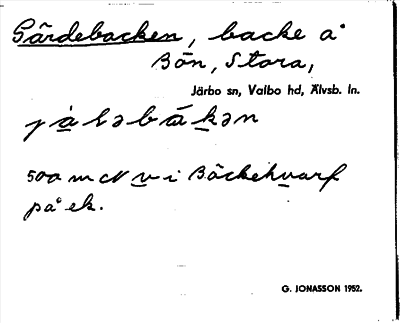 Gärdebacken, backe å
Bön, Stora,
Järbo sn, Valbo hd, Älvsb. ln.
500 m N v i Bäckehvarf
på ek.
G. JONASSON 1952.